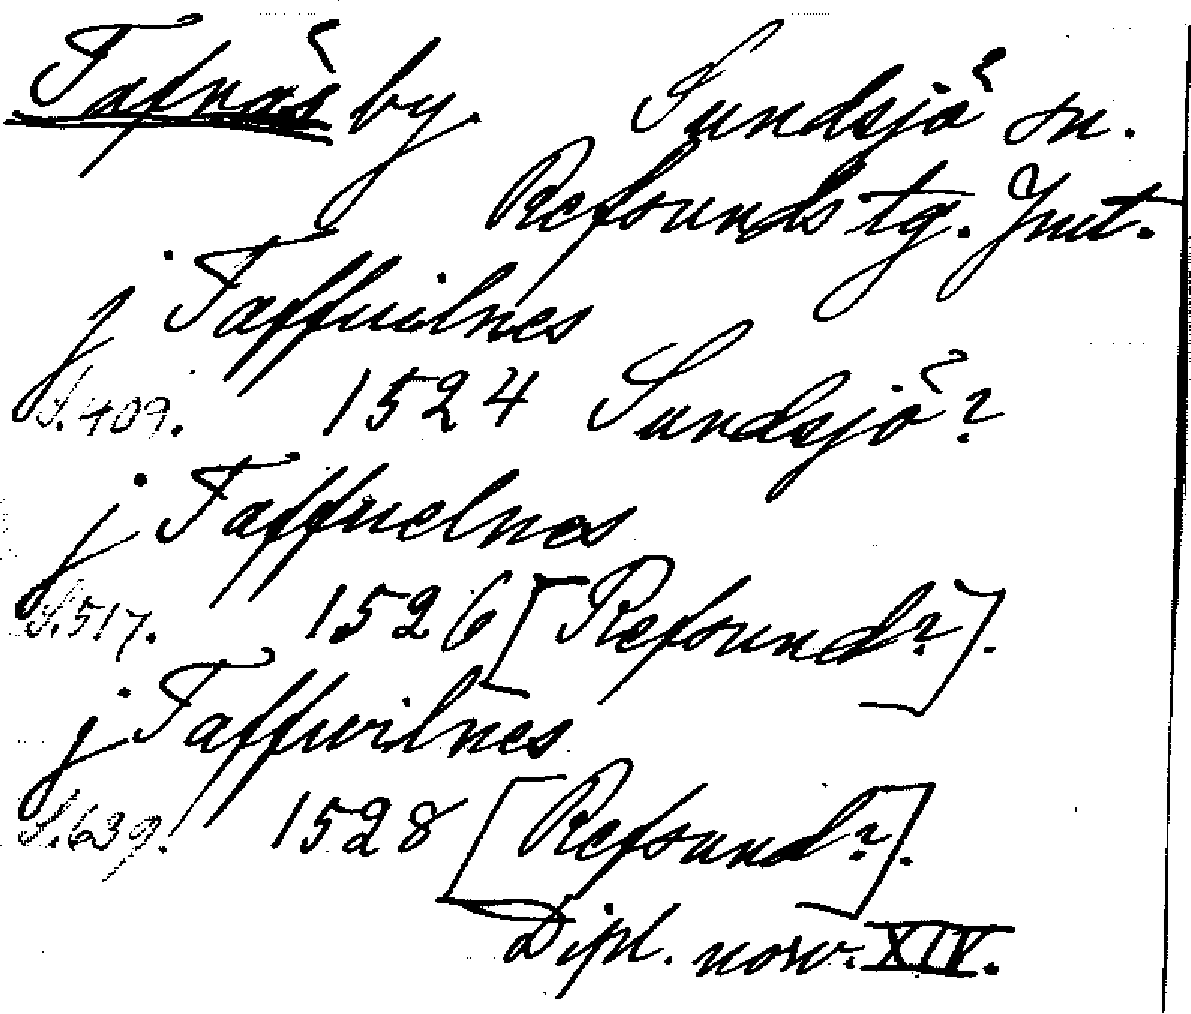 Tafnäs by. Sundsjö sn.
Refsunds tg. Jmt.
j Taffuilnes
S. 409. 1524 Sundsjö?
j Taffuelnes
S. 517. 1526 [Refsund?].
j Taffwilnes
S. 639. 1528 [Refsund?].
Dipl. norv. XIV.